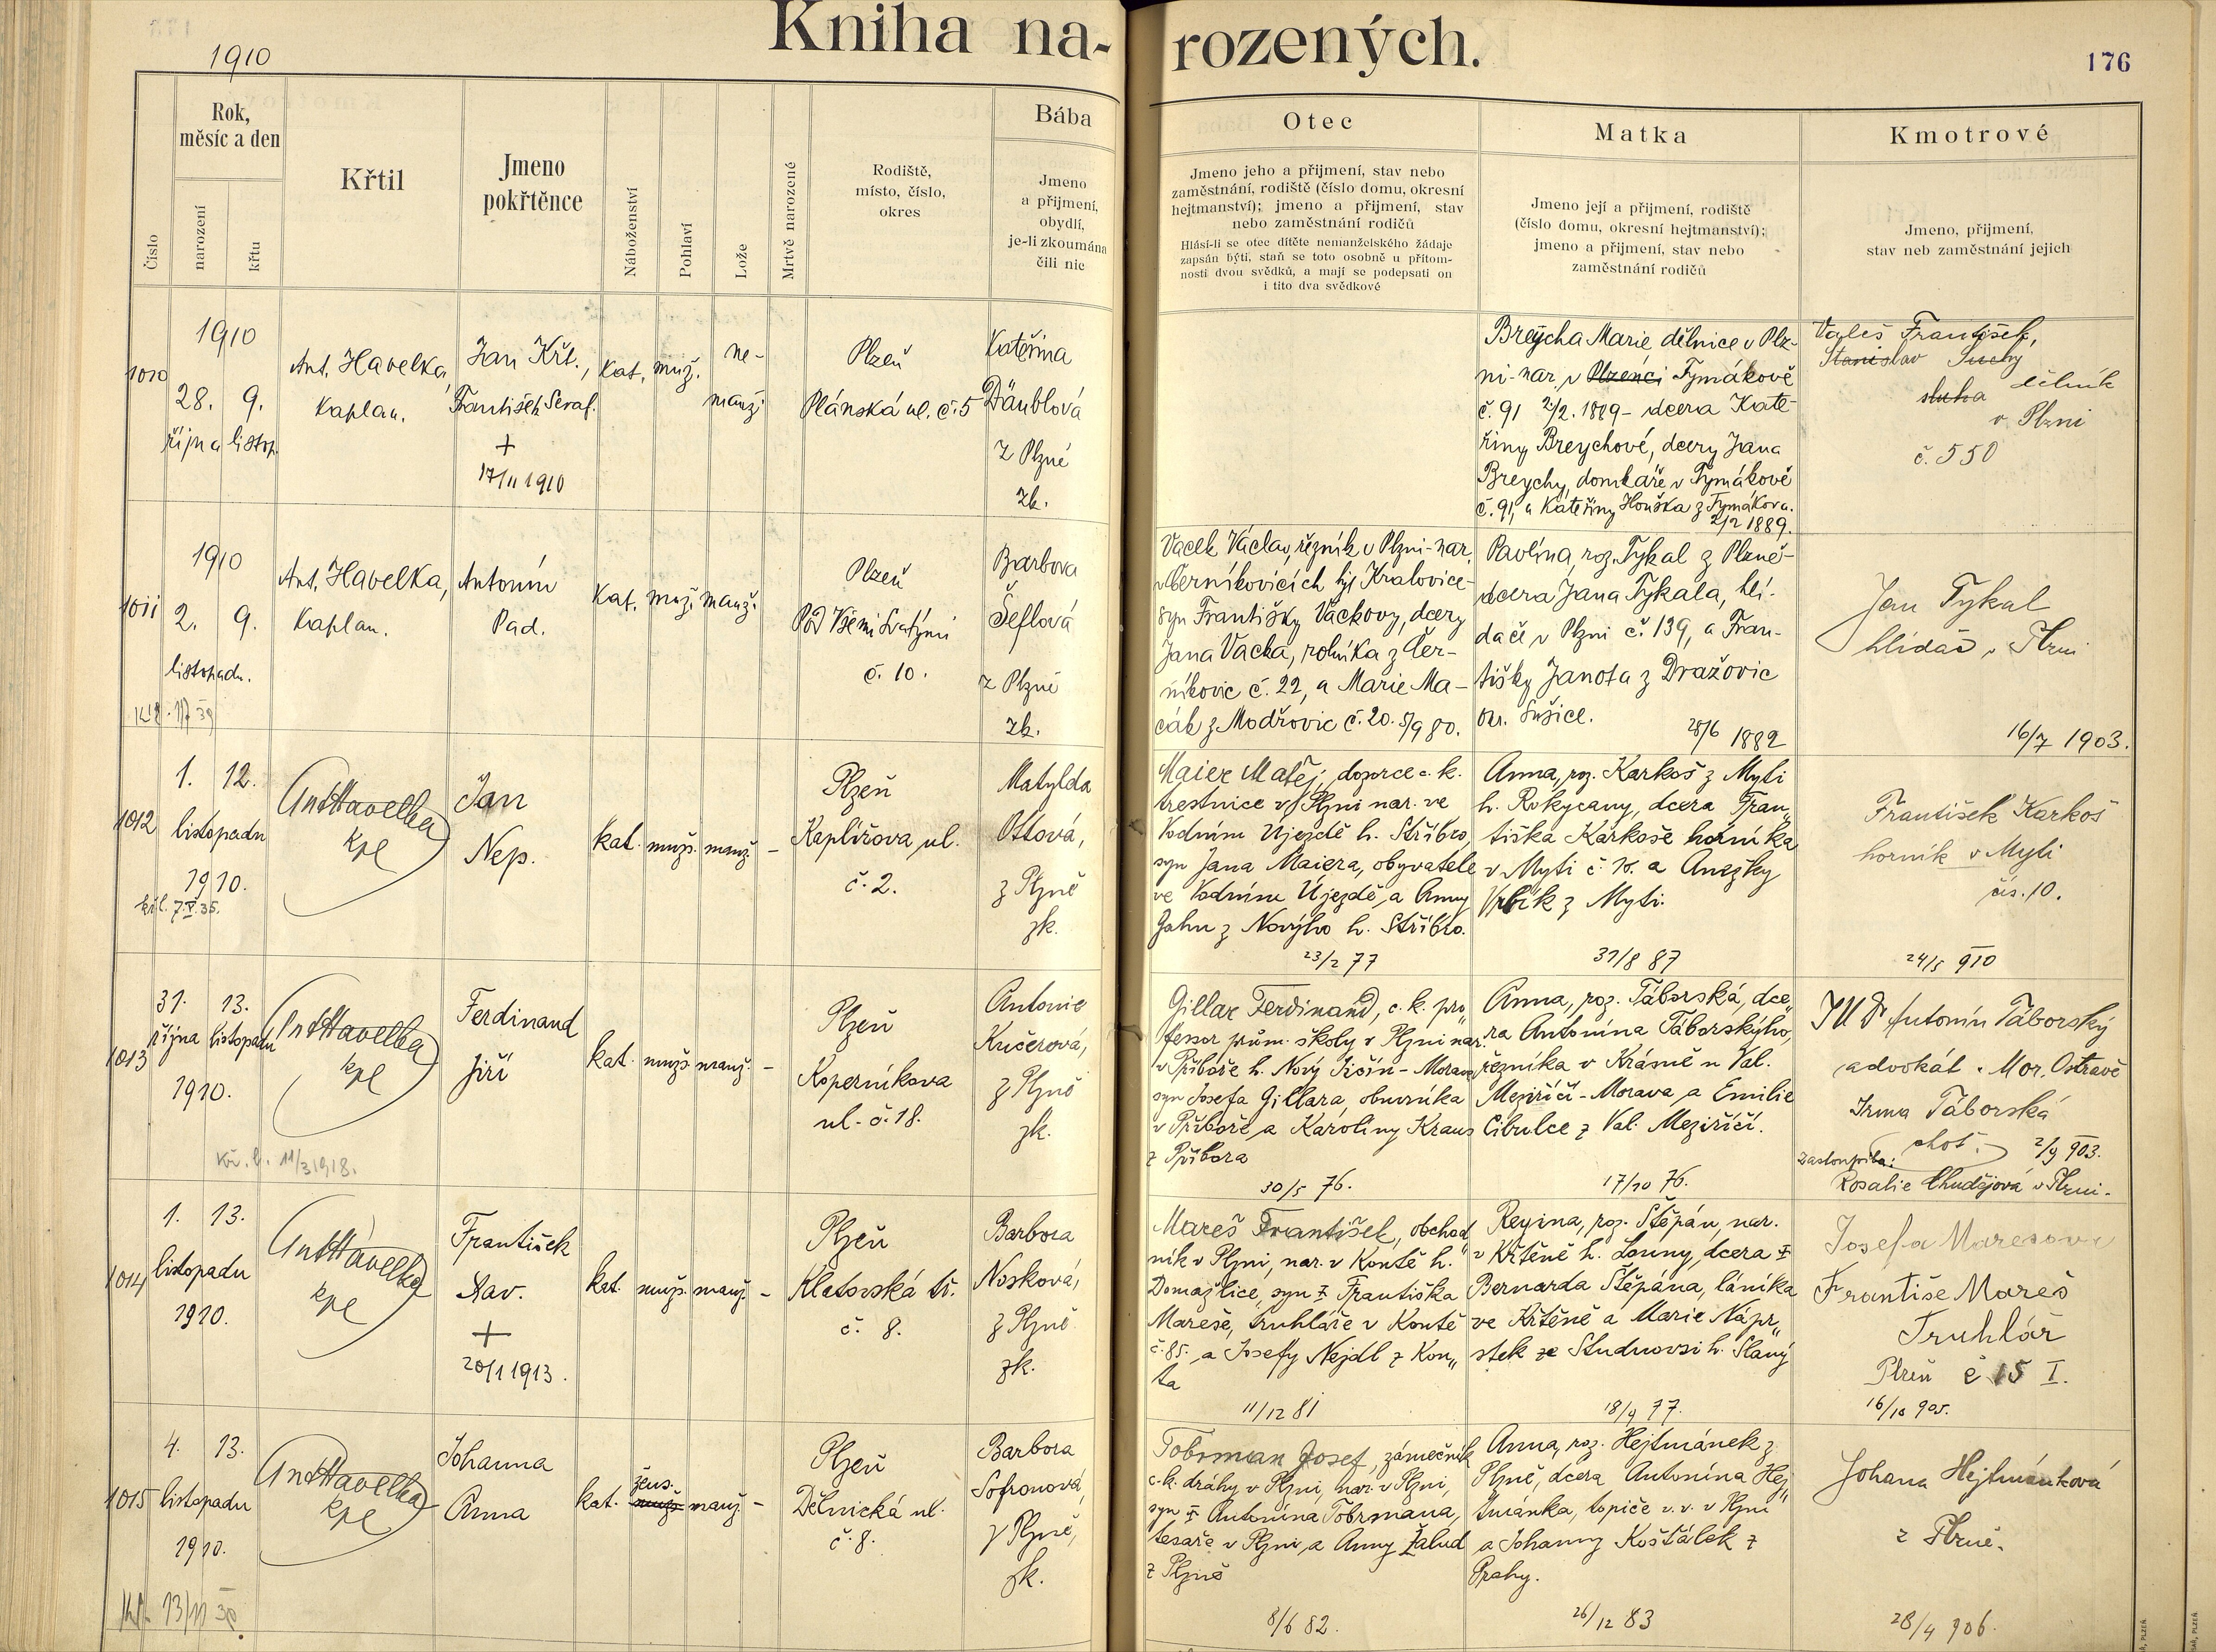 Kniha na-
rozených.
1910
176
Rok,
měsíc a den
Číslo
narození
křtu
Křtil
Jmeno
pokřtěnce
Náboženství
Pohlaví
Lože
Mrtvě narozené
Rodiště,
místo, číslo,
okres
Bába
Jmeno
a přijmení,
obydlí,
je-li zkoumána
čili nic
Otec
Jmeno jeho a přijmení, stav nebo
zaměstnání, rodiště (číslo domu, okresní
hejtmanství); jmeno a přijmení, stav
nebo zaměstnání rodičů
Hlásí-li se otec dítěte nemanželského žádaje
zapsán býti, staň se toto osobně u přítom-
nosti dvou svědků, a mají se podepsati on
i tito dva svědkové
Matka
Jmeno její a přijmení, rodiště
(číslo domu, okresní hejtmanství);
jmeno a přijmení, stav nebo
zaměstnání rodičů
Kmotrové
Jmeno, přijmení,
stav neb zaměstnání jejich
1010
1910
28. 9.
října listop.
Ant. Havelka,
kaplan.
Jan Křt.,
František Seraf.
+
17/11 1910
kat.
muž.
ne-
manž.
Plzeň
Plánská ul. č. 5
Kateřina
Däublová
z Plzně
zk.
Breycha Marie dělnice v Plz-
ni-nar. v Plzenci Tymákově
č. 91 2/2. 1889 - dcera Kate-
řiny Breychové, dcery Jana
Breychy, domkáře v Tymákově
č. 91, a Kateřiny Houška z Tymákova.
2/2 1889.
Valeš František,
Stanislav Suchy
dělník
sluha
v Plzni
č. 550
1011
1910
2. 9.
listopadu.
Ant. Havelka,
kaplan.
Antonín
Pad.
kat.
muž.
manž.
Plzeň
Pod Všemi Svatými
č. 10.
Barbora
Šeflová
z Plzně
zk.
Vacek Václav, řezník v Plzni-nar.
v Černíkovicích hjt Kralovice-
syn Františky Vackovy, dcery
Jana Vacka, rolníka z Čer-
níkovic č. 22, a Marie Ma-
cák z Modřovic č. 20. 5/9 80.
Pavlína, roz. Tykal z Plzně-
dcera Jana Tykala, hlí-
dače v Plzni č. 139, a Fran-
tišky Janota z Dražovic
okr. Sušice.
28/6 1882
Jan Tykal
hlídač v Plzni
16/7 1903.
1012
1. 12.
listopadu
1910.
7.V.35.
Ant Havelka
kpl
Jan
Nep.
kat.
mužs.
manž.
-
Plzeň
Kaplířova ul.
č. 2.
Matylda
Ottová,
z Plzně
zk.
Maier Matěj, dozorce c. k.
trestnice v Plzni nar. ve
Vodním Újezdě h. Stříbro,
syn Jana Maiera, obyvatele
ve Vodním Újezdě, a Anny
Jahn z Novýho h. Stříbro.
23/2 77
Anna, roz. Karkoš z Myti
h. Rokycany, dcera Fran„
tiška Karkoše horníka
v Myti č. 10. a Anežky
Vrbík z Myti.
31/8 87
František Karkoš
horník v Myti
čís. 10.
24/5 910
1013
31. 13.
října listopadu
1910.
11/3 1918.
Ant Havelka
kpl
Ferdinand
Jiří
kat.
mužs.
manž.
-
Plzeň
Koperníkova
ul. č. 18.
Antonie
Kučerová,
z Plzně
zk.
Gillar Ferdinand, c. k. pro„
fessor prům. školy v Plzni nar.
v Příboře h. Nový Jičín - Morava
syn Josefa Gillara, obuvníka
v Příboře, a Karoliny Kraus
z Příbora
30/5 76.
Anna, roz. Táborská, dce„
ra Antonína Táborskýho,
řezníka v Krásně n Val.
Meziříčí - Morava, a Emilie
Cibulce z Val. Meziříčí.
17/10 76.
JUDr Antonín Táborský
advokát v Mor. Ostravě
Irma Táborská
choť.
2/9 903.
Rosalie Chudějová v Plzni.
1014
1. 13.
listopadu
1910.
Ant Havelka
kpl
František
Xav.
+
20/1 1913.
kat.
mužs.
manž.
-
Plzeň
Klatovská tř.
č. 8.
Barbora
Nosková,
z Plzně
zk.
Mareš František, obchod„
ník v Plzni, nar. v Koutě h.
Domažlice, syn ‡ Františka
Mareše, truhláře v Koutě
č. 85. a Josefy Nejdl z Kou„
ta
11/12 81
Regina, roz. Štěpán, nar.
v Křtěně h. Louny, dcera ‡
Bernarda Štěpána, láníka
ve Křtěně a Marie Nápr„
stek ze Studnovsi h. Slaný
18/9 77.
Josefa Maresova
Františe Mareš
Truhlář
Plzeň č 15 I.
16/10 905.
1015
4. 13.
listopadu
1910.
Ant Havelka
kpl
Johanna
Anna
kat.
žens.
mužs.
manž.
-
Plzeň
Dělnická ul.
č. 8.
Barbora
Sofronová,
z Plzně,
zk.
Tobrman Josef, zámečník
c. k. dráhy v Plzni, nar. v Plzni,
syn ‡ Antonína Tobrmana,
tesaře v Plzni, a Anny Žalud
z Plzně
8/6 82.
Anna, roz. Hejtmánek z
Plzně, dcera Antonína Hej„
tmánka, topiče v. v. v Plzni
a Johanny Košťálek z
Prahy.
26/12 83
Johana Hejtmánková
z Plzně.
28/4 906.